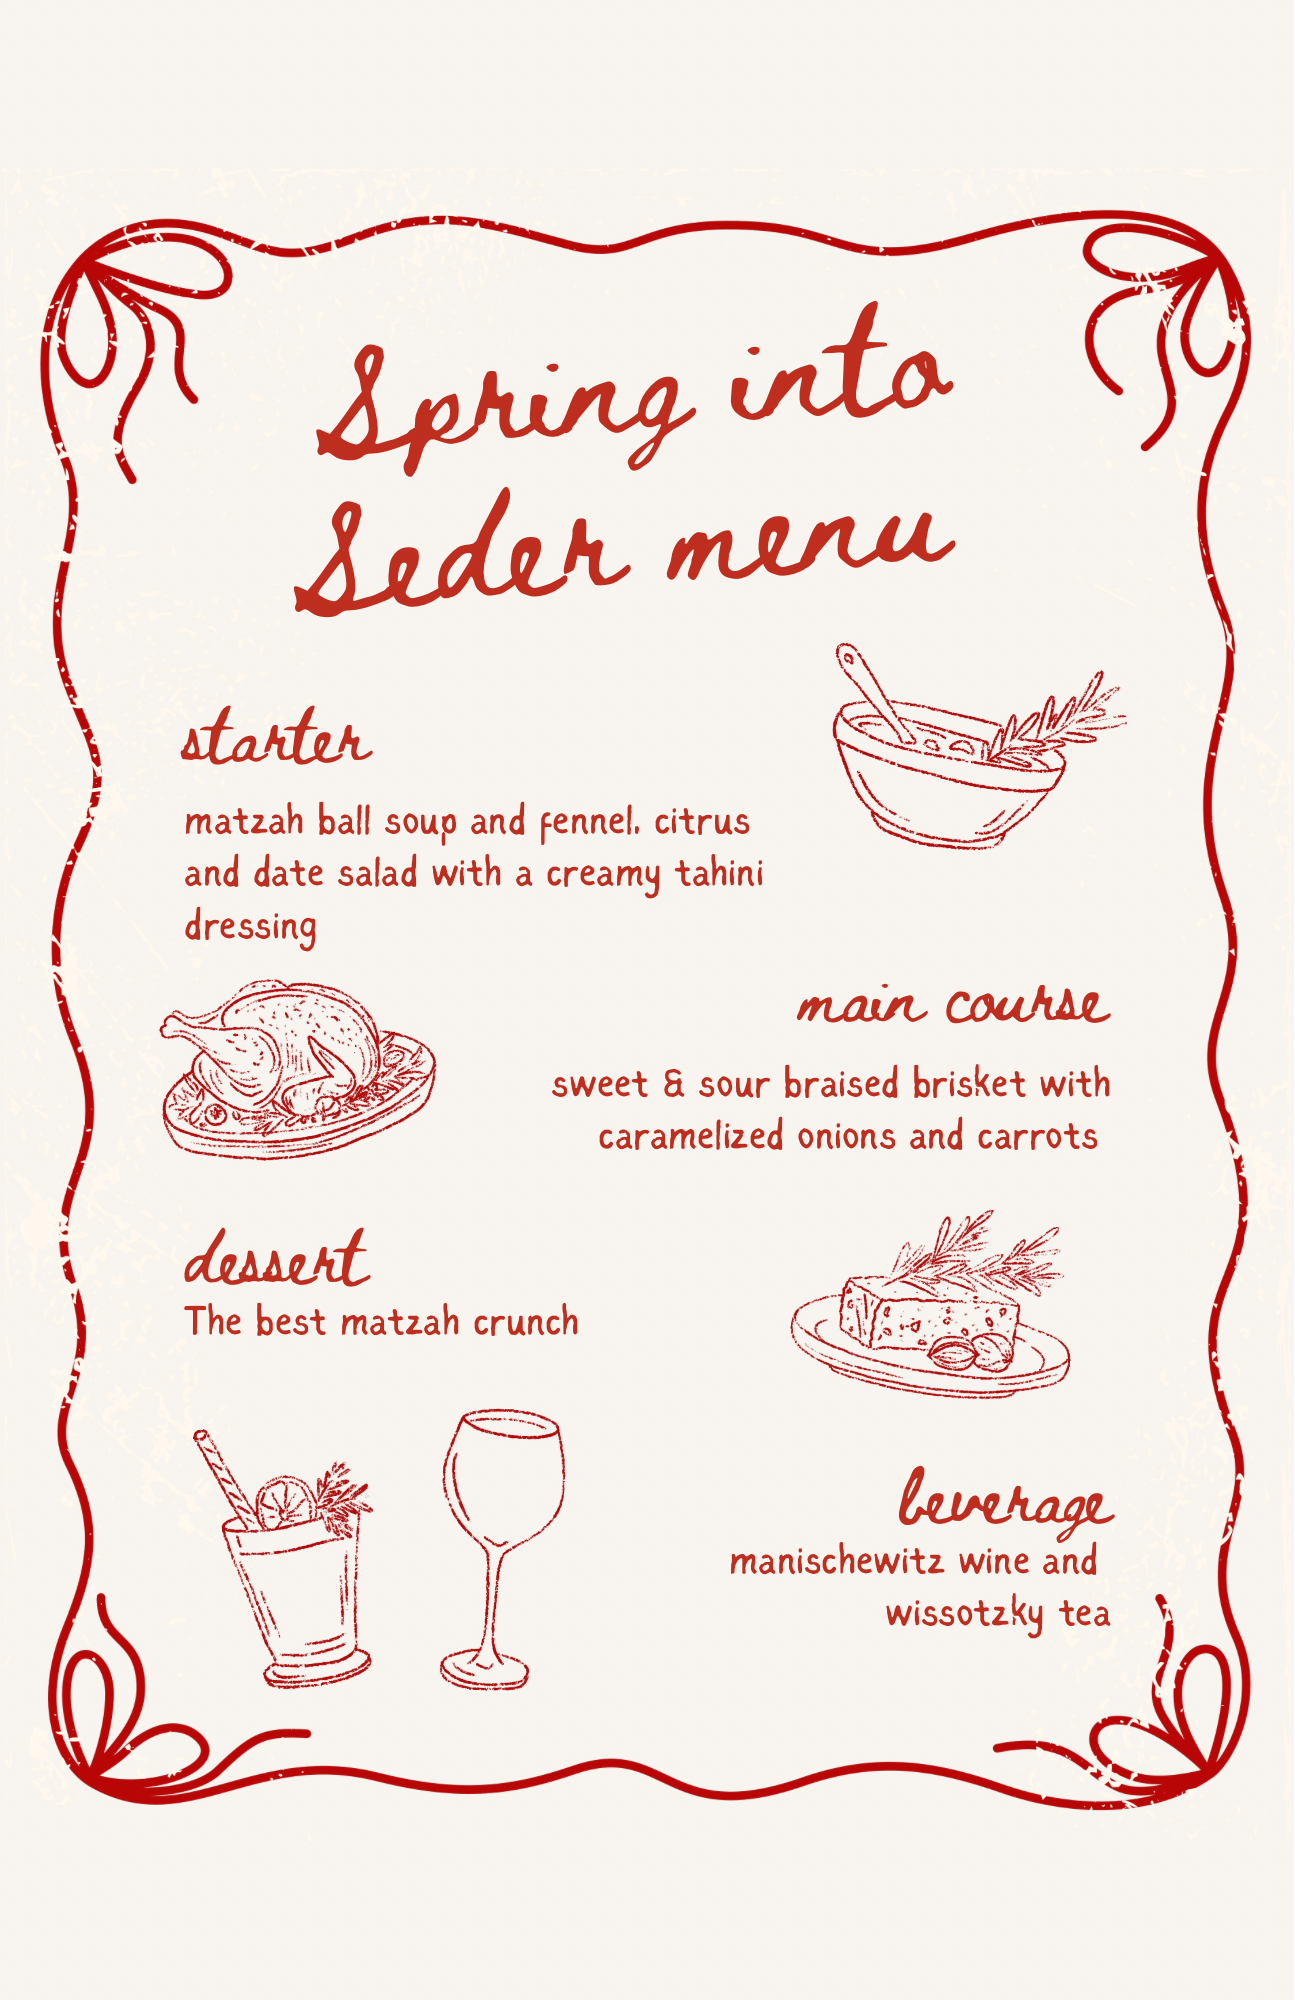 Spring into
Seder menu
starter
matzah ball soup and fennel, citrus
and date salad with a creamy tahini
dressing
main course
sweet & sour braised brisket with
caramelized onions and carrots
dessert
The best matzah crunch
beverage
manischewitz wine and
wissotzky tea